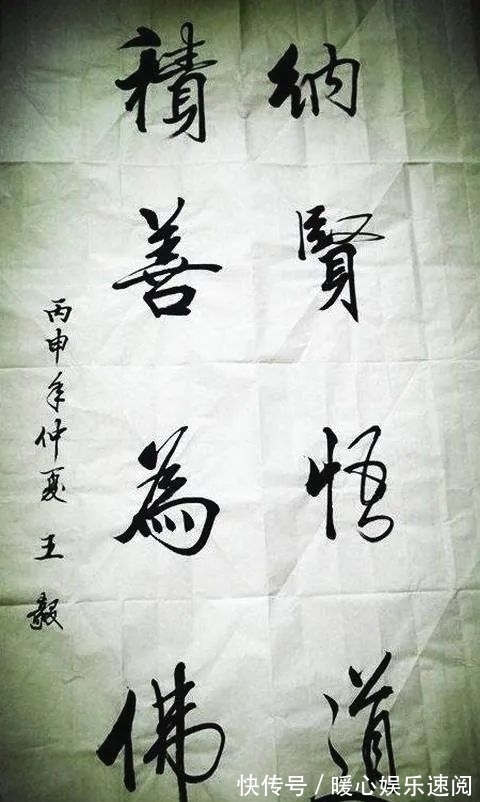 纳贤悟道
積善為佛
丙申年仲夏 王毅
快传号/暖心娱乐速阅